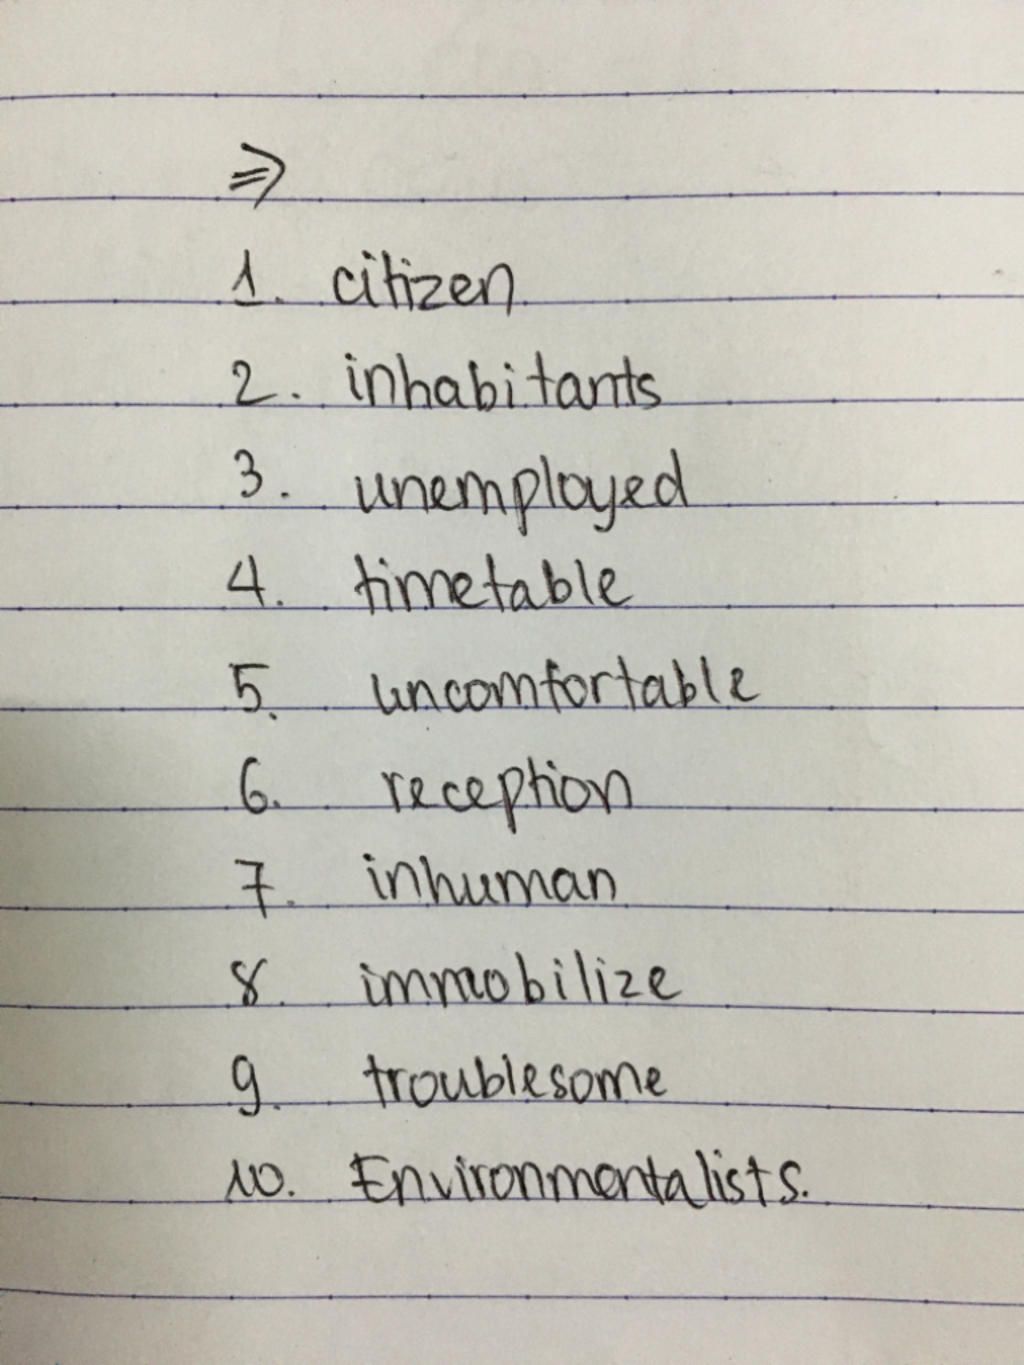 ⇒
1. citizen
2. inhabitants
3. unemployed
4. timetable
5. uncomfortable
6. reception
7. inhuman
8. immobilize
9. troublesome
10. Environmentalists.